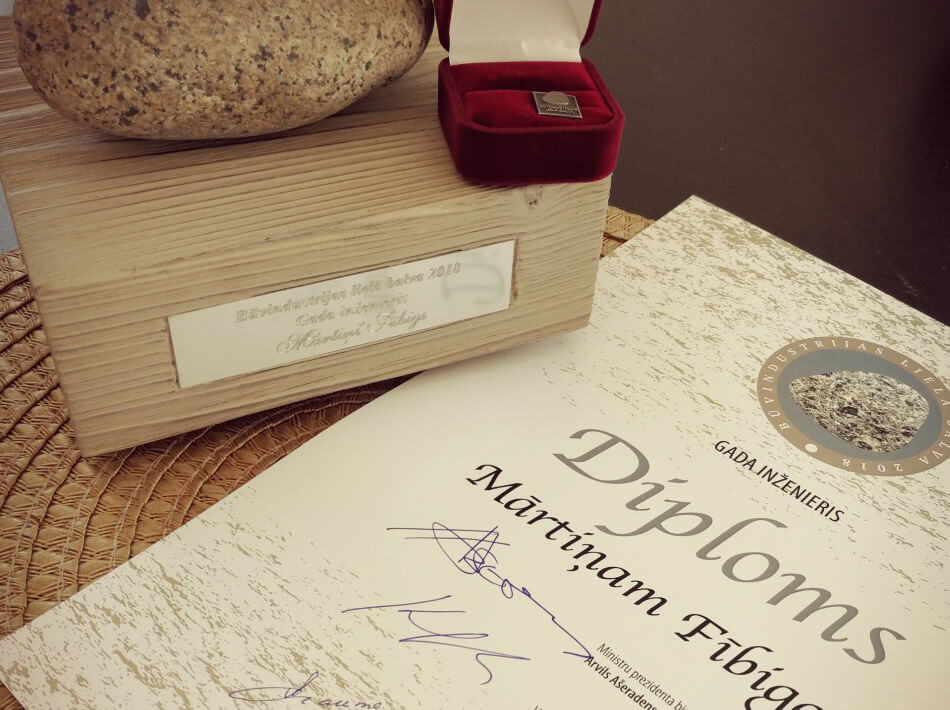 Būvindustrijas lielā balva 2018
Gada inženieris
Mārtiņš Fībigs
BŪVINDUSTRIJAS LIELĀ BALVA 2018
GADA INŽENIERIS
Diploms
Mārtiņam Fībiga
Ministru prezidenta bi
Arvils Ašeradens